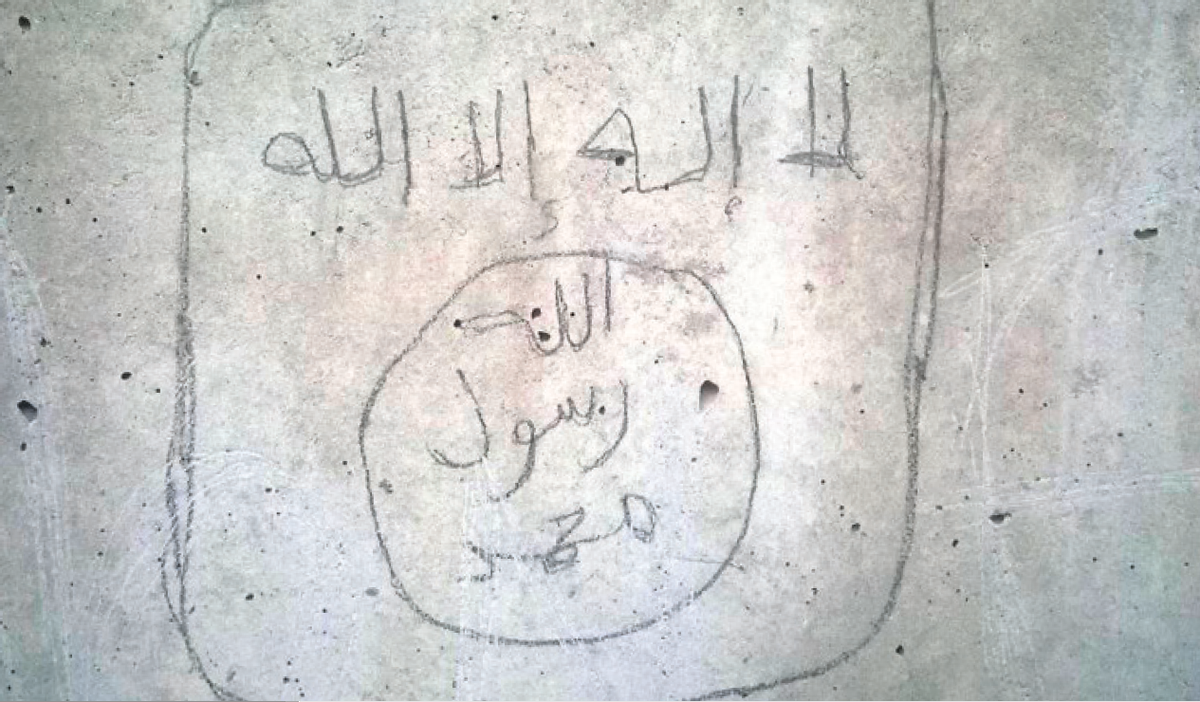 لا إله الا الله
الله
رسول
محمد